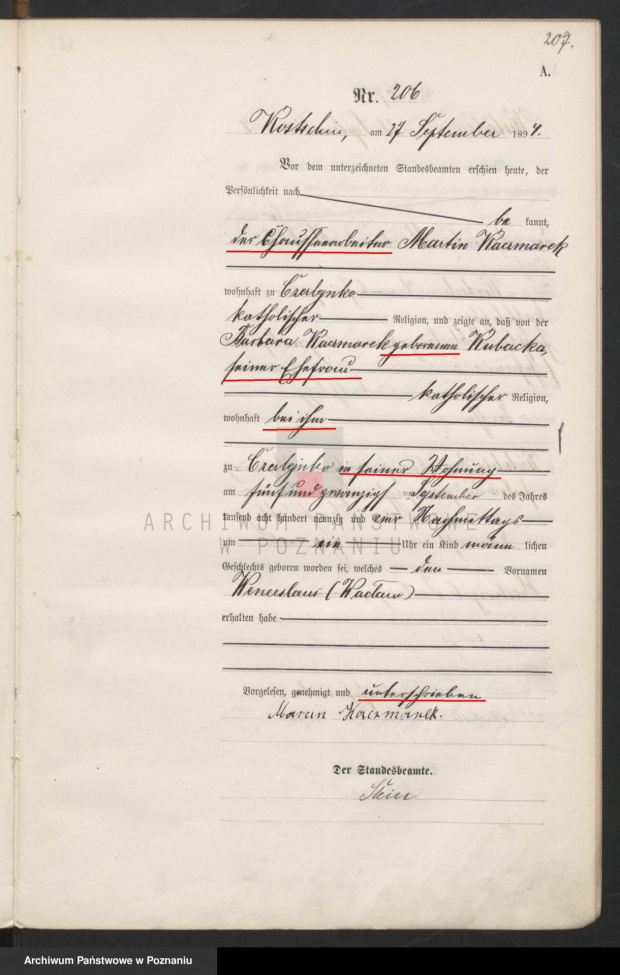 207.
A.
Nr. 206
Kostschin, am 27 September 1894.
Vor dem unterzeichneten Standesbeamten erschien heute, der
Persönlichkeit nach
be kannt,
der Chausseearbeiter Martin Kaczmarek
wohnhaft zu Czerlejnko
katholischer Religion, und zeigte an, daß von der
Barbara Kaczmarek geborenen Kubacka,
seiner Ehefrau
katholischer Religion,
wohnhaft bei ihm
zu Czerlejnko in seiner Wohnung
am fünf und zwanzigsten September des Jahres
tausend acht hundert neunzig und vier Nachmittags
um ein Uhr ein Kind männ lichen
Geschlechts geboren worden sei, welches den Vornamen
Wenceslaus (Wacław)
erhalten habe
Vorgelesen, genehmigt und unterschrieben
Marcin Kaczmarek.
Der Standesbeamte.
ARCHIWUM PAŃSTWOWE
W POZNANIU
Archiwum Państwowe w Poznaniu